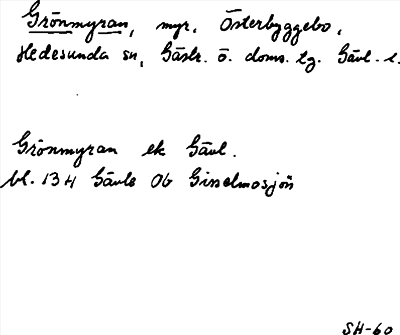 Grönmyran, myr, Österbyggebo,
Hedesunda sn, Gästr. ö. doms. lg. Gävl. l.
Grönmyran ek Gävl.
bl. 13 H Gävle Ob Ginselmosjön
SH-60